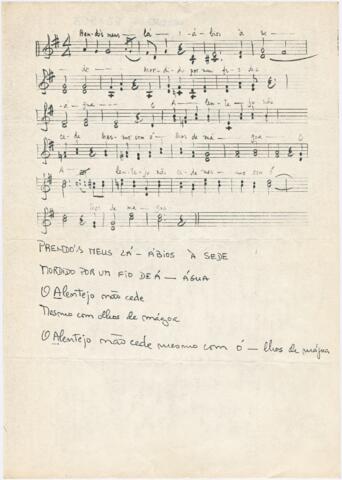 Prendo's meus lá - á - bios à se -
de - Mordido por um fio de
á - gua - O A - len - te - jo não
ce - de mes - mo com ó - lhos de má - goa - O
A - len - te - jo não ce - de mes - mo com ó -
lhos de má - goa
PRENDO'S MEUS LÁ - ÁBIOS À SEDE
MORDIDO POR UM FIO DE Á — ÁGUA
O Alentejo não cede
Mesmo com olhos de mágoa
O Alentejo não cede mesmo com ó — lhos de mágoa